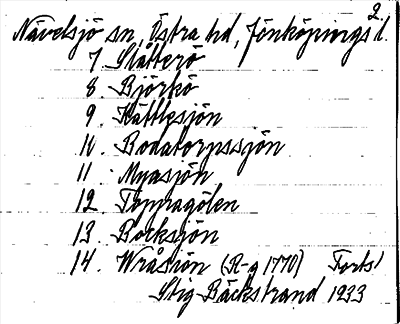 2.
Nävelsjö sn, Östra hd, Jönköpings l.
7. Slätterö
8. Björkö
9. Kättlesjön
10. Bodatorpssjön
11. Myasjön
12. Topragölen
13. Bocksjön
14. Wråsjön (R-g 1770) Forts/
Stig Bäckstrand 1933